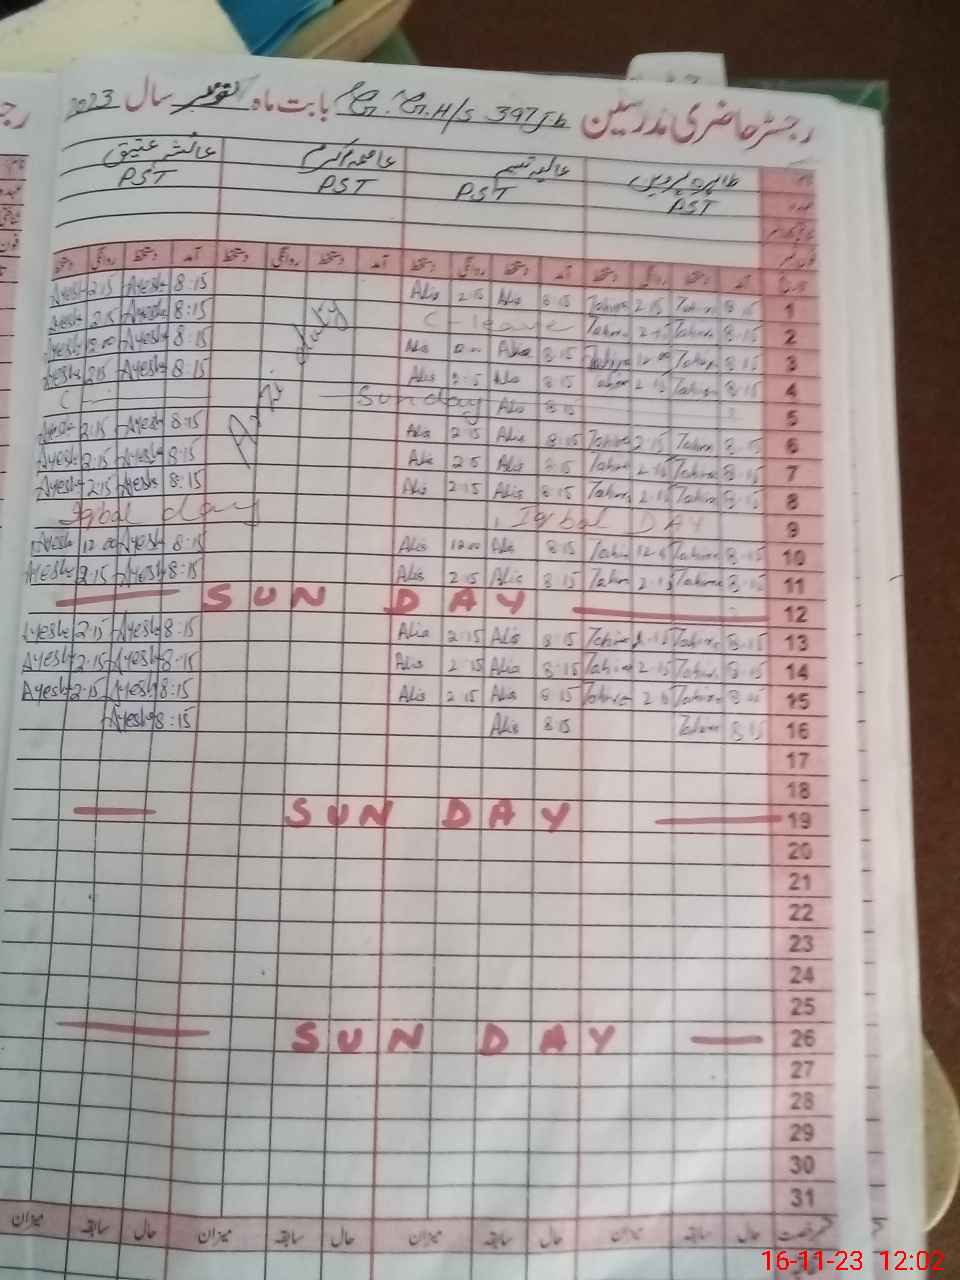 رجسٹر حاضری مدرسین G.G.H/S 397 Jb بابت ماہ نومبر سال 2023
نام طاہرہ پروین عالیہ نسیم عاصمہ اکرم عائشہ عتیق
عہدہ PST PST PST PST
تاریخ آمد دستخط روانگی دستخط آمد دستخط روانگی دستخط آمد دستخط روانگی دستخط آمد دستخط روانگی دستخط
1 8:15 Tahira 2:15 Tahira 8:15 Alia 2:15 Alia 8:15 Ayesha 2:15 Ayesha
2 8:15 Tahira 2:15 Tahira C-leave 8:15 Ayesha 2:15 Ayesha
3 8:15 Tahira 12:00 Tahira 8:15 Alia 12:00 Alia 8:15 Ayesha 12:00 Ayesha
4 8:15 Tahira 2:15 Tahira 8:15 Alia 2:15 Alia 8:15 Ayesha 2:15 Ayesha
5 8:15 Alia Sunday
6 8:15 Tahira 2:15 Tahira 8:15 Alia 2:15 Alia 8:15 Ayesha 2:15 Ayesha
7 8:15 Tahira 2:15 Tahira 8:15 Alia 2:15 Alia 8:15 Ayesha 2:15 Ayesha
8 8:15 Tahira 2:15 Tahira 8:15 Alia 2:15 Alia 8:15 Ayesha 2:15 Ayesha
9 Iqbal DAY Iqbal day
10 8:15 Tahira 12:00 Tahira 8:15 Alia 12:00 Alia 8:15 Ayesha 12:00 Ayesha
11 8:15 Tahira 2:15 Tahira 8:15 Alia 2:15 Alia 8:15 Ayesha 2:15 Ayesha
12 SUN DAY
13 8:15 Tahira 2:15 Tahira 8:15 Alia 2:15 Alia 8:15 Ayesha 2:15 Ayesha
14 8:15 Tahira 2:15 Tahira 8:15 Alia 2:15 Alia 8:15 Ayesha 2:15 Ayesha
15 8:15 Tahira 2:15 Tahira 8:15 Alia 2:15 Alia 8:15 Ayesha 2:15 Ayesha
16 8:15 Tahira 8:15 Alia 8:15 Ayesha
duty
17
18
19 SUN DAY
20
21
22
23
24
25
26 SUN DAY
27
28
29
30
31
رخصت حال سابقہ میزان حال سابقہ میزان حال سابقہ میزان حال سابقہ میزان
16-11-23 12:02